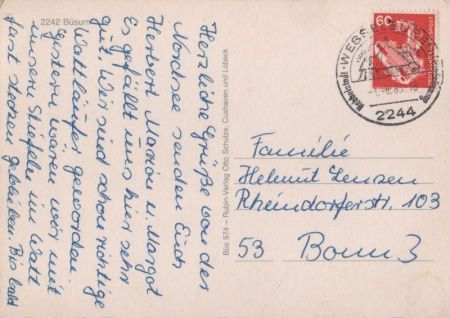 2242 Büsum
Herzliche Grüße von der
Nordsee senden Euch
Herbert Marion u. Margot
Es gefällt uns hier sehr
gut. Wir sind schon richtige
Wattläufer geworden.
Gestern wären wir mit
unsere Stiefeln im Watt
fast stecken geblieben. Bis bald
Büs 574 – Rubin-Verlag Otto Schulze, Cuxhaven und Lübeck
60
DEUTSCHE BUNDESPOST
2244
Familie
Helmut Jensen
Rheindorferstr. 103
53 Bonn 3